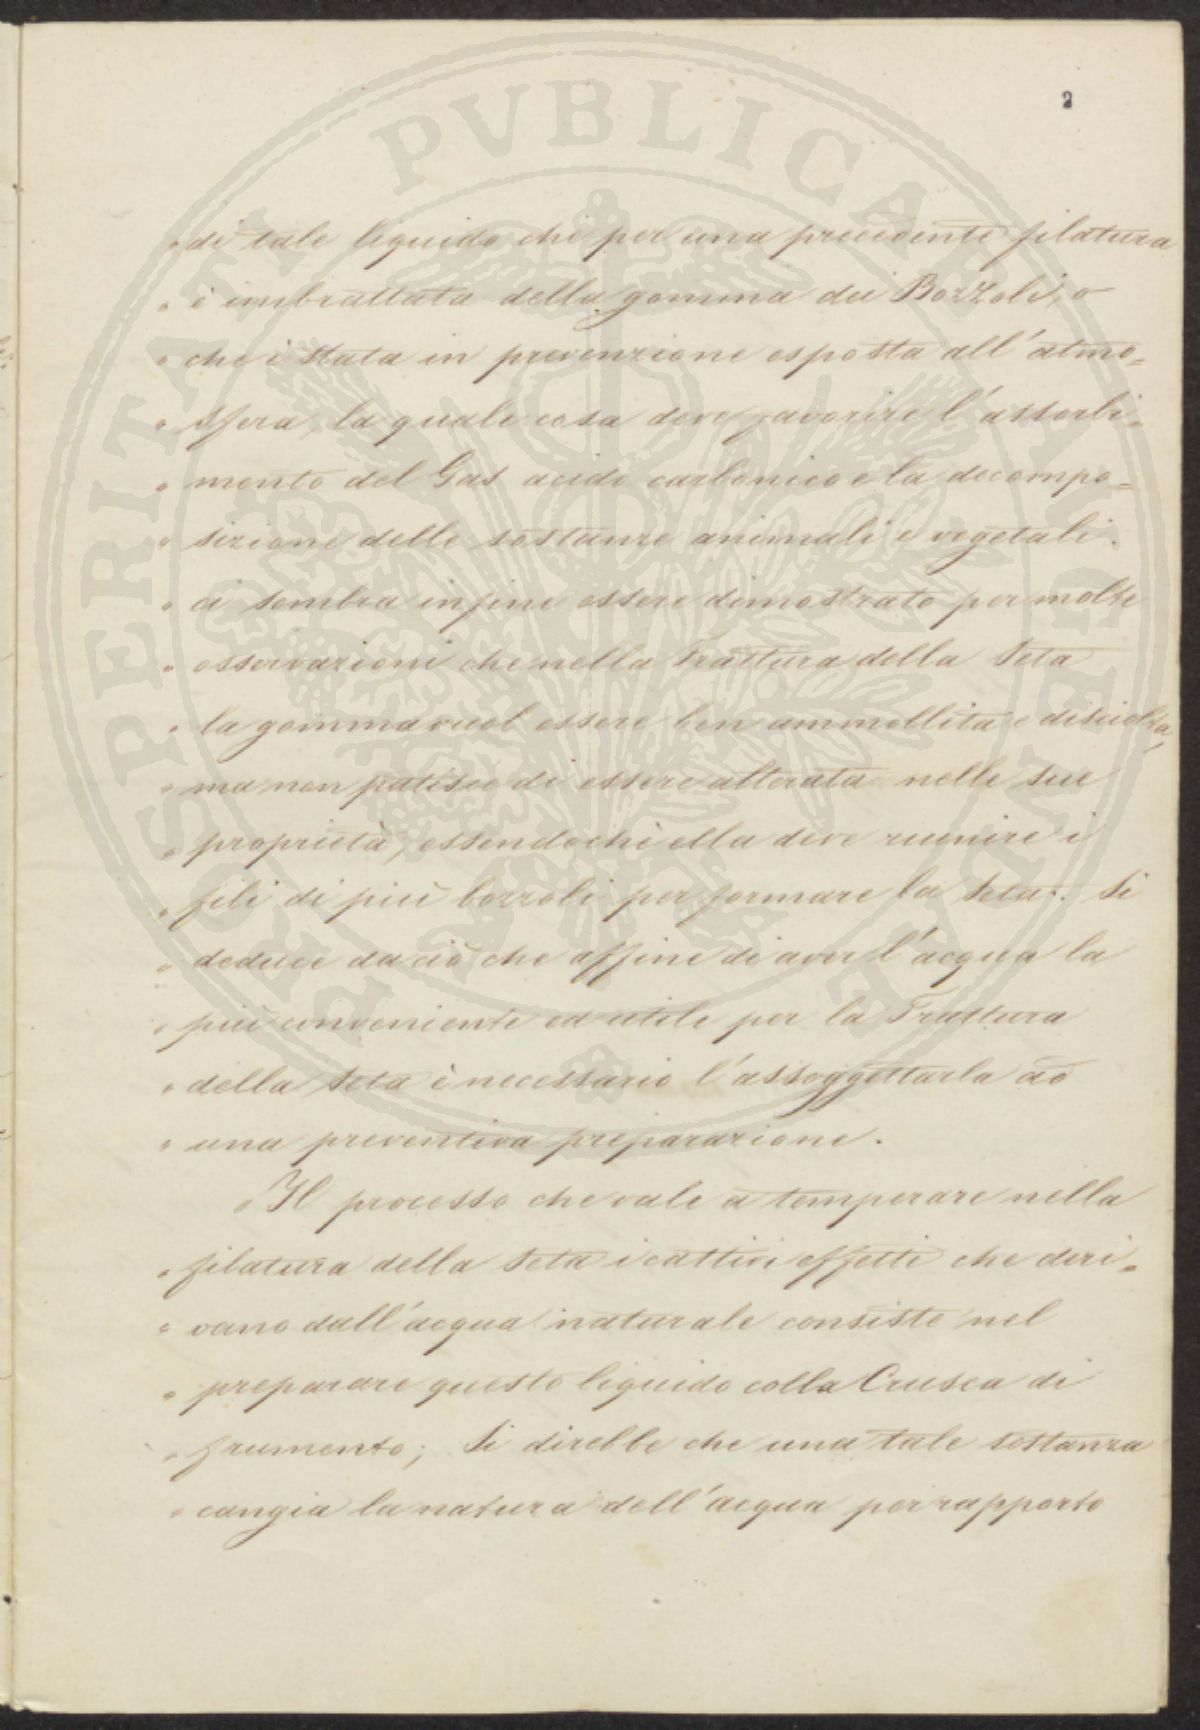 2
PROSPERITATI PVBLICAE AVGENDAE
" di tale liquido che per una precedente filatura
" è imbrattata della gomma dei Bozzoli, o
" che è stata in prevenzione esposta all'atmo=
" sfera, la quale cosa deve favorire l'assorbi=
" mento del Gas acido carbonico e la decompo=
" sizione delle sostanze animali e vegetali.
" ci sembra infine essere dimostrato per molte
" osservazioni che nella Trattura della Seta
" la gomma vuol essere ben ammollita e disciolta,
" ma non patisce di essere alterata nelle sue
" proprietà, essendochè ella deve riunire i
" fili di più bozzoli per formare la Seta: Si
" deduce da ciò che affine di aver l'acqua la
" più conveniente ed utile per la Trattura
" della Seta è necessario l'assoggettarla ad
" una preventiva preparazione.
" Il processo che vale a temperare nella
" filatura della Seta i cattivi effetti che deri=
" vano dall'acqua naturale consiste nel
" preparare questo liquido colla Crusca di
" frumento; Si direbbe che una tale sostanza
" cangia la natura dell'acqua per rapporto